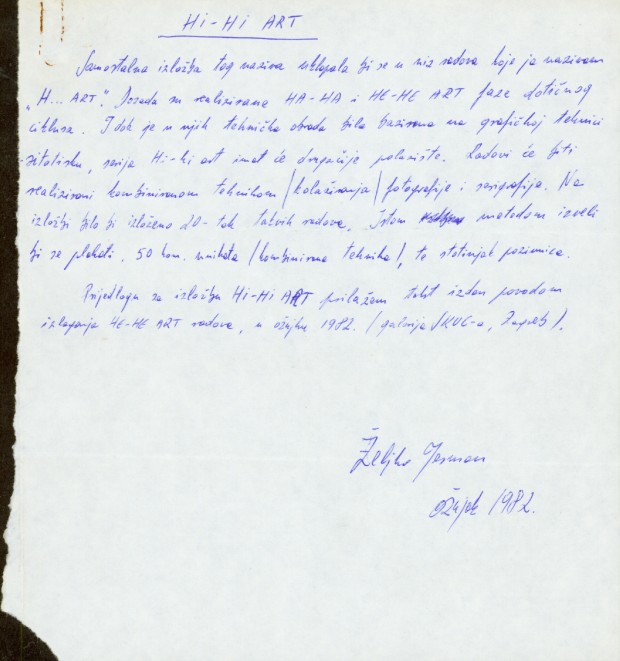 Hi-Hi ART
Samostalna izložba tog naziva uklapala bi se u niz radova koje ja nazivam
„H... ART". Dosada su realizirane HA-HA i HE-HE ART faze dotičnog
ciklusa. I dok je u njih tehnička obrada bila bazirana na grafičkoj tehnici
-sitotisku, serija Hi-hi art imat će drugačije polazište. Radovi će biti
realizirani kombiniranom tehnikom /kolažiranja/ fotografije i serigrafija. Na
izložbi bilo bi izloženo 20-tak takvih radova. Istom metodom izveli
bi se plakati, 50 kom. unikata /kombinirana tehnika/, te stotinjak pozivnica.
Prijedlogu za izložbu Hi-Hi ART prilažem tekst izdan povodom
izlaganja HE-HE ART radova, u ožujku 1982. /galerija SKUC-a, Zagreb/.
Željko Jerman
ožujak 1982.